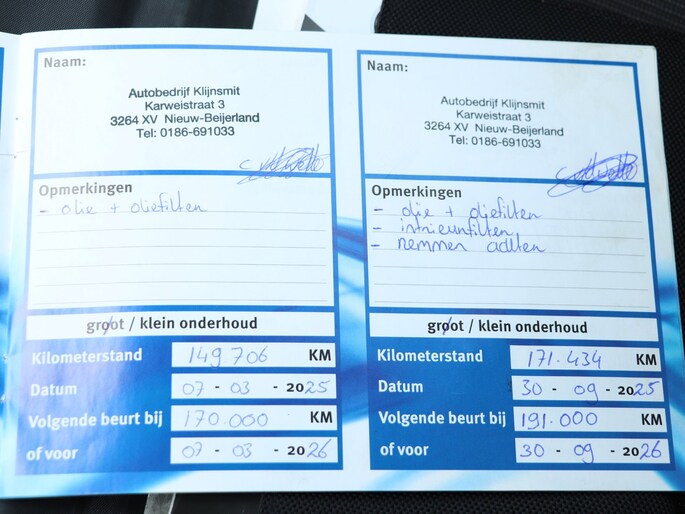 Naam:
Autobedrijf Klijnsmit
Karweistraat 3
3264 XV Nieuw-Beijerland
Tel: 0186-691033
Opmerkingen
- olie + oliefilter
groot / klein onderhoud
Kilometerstand 149706 KM
Datum 07 - 03 - 2025
Volgende beurt bij 170.000 KM
of voor 07 - 03 - 2026
Naam:
Autobedrijf Klijnsmit
Karweistraat 3
3264 XV Nieuw-Beijerland
Tel: 0186-691033
Opmerkingen
- olie + oliefilter
- intrieurfilter
- remmen achter
groot / klein onderhoud
Kilometerstand 171.434 KM
Datum 30 - 09 - 2025
Volgende beurt bij 191.000 KM
of voor 30 - 09 - 2026